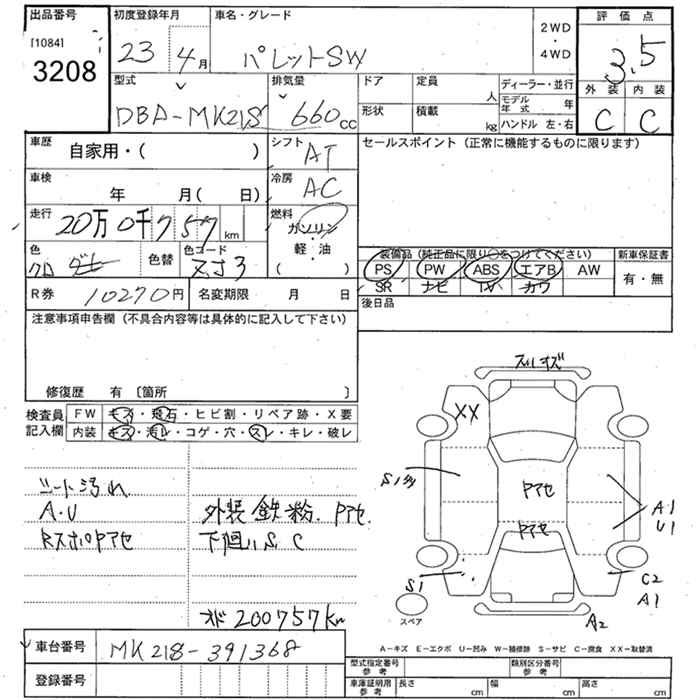 出品番号
[1084]
3208
初度登録年月
23 4月
車名・グレード
パレットSW
2WD
・
4WD
評価点
3.5
外装 内装
C C
型式
DBA-MK21S
排気量
660cc
ドア
定員
人
形状
積載
kg
ディーラー・並行
モデル年式 年
ハンドル 左・右
車歴
自家用・( )
シフト
AT
車検
年 月(日)
冷房
AC
走行
20万0千757km
燃料
ガソリン
・
軽・油
( )
色
クロ
色替
色コード
ZJ3
R券 10270円
名変期限 月 日
セールスポイント(正常に機能するものに限ります)
装備品(純正品に限り○をつけてください)
PS PW ABS エアB AW
SR ナビ TV カワ
新車保証書
有・無
後日品
注意事項申告欄(不具合内容等は具体的に記入して下さい)
修復歴 有〔箇所 〕
検査員記入欄
FW キズ・飛石・ヒビ割・リペア跡・X要
内装 キズ・汚レ・コゲ・穴・スレ・キレ・破レ
シート汚れ
A・U
RスポPアセ
外装鉄粉、Pアセ
下廻りS、C
メーター200757km
車台番号
MK21S-391368
登録番号
XX
Pアセ
Pアセ
A1
U1
S1
C2
A1
A2
スペア
A-キズ E-エクボ U-凹み W-補修跡 S-サビ C-腐食 XX-取替済
型式指定番号 参考
類別区分番号 参考
車庫証明用 参考
長さ cm
幅 cm
高さ cm